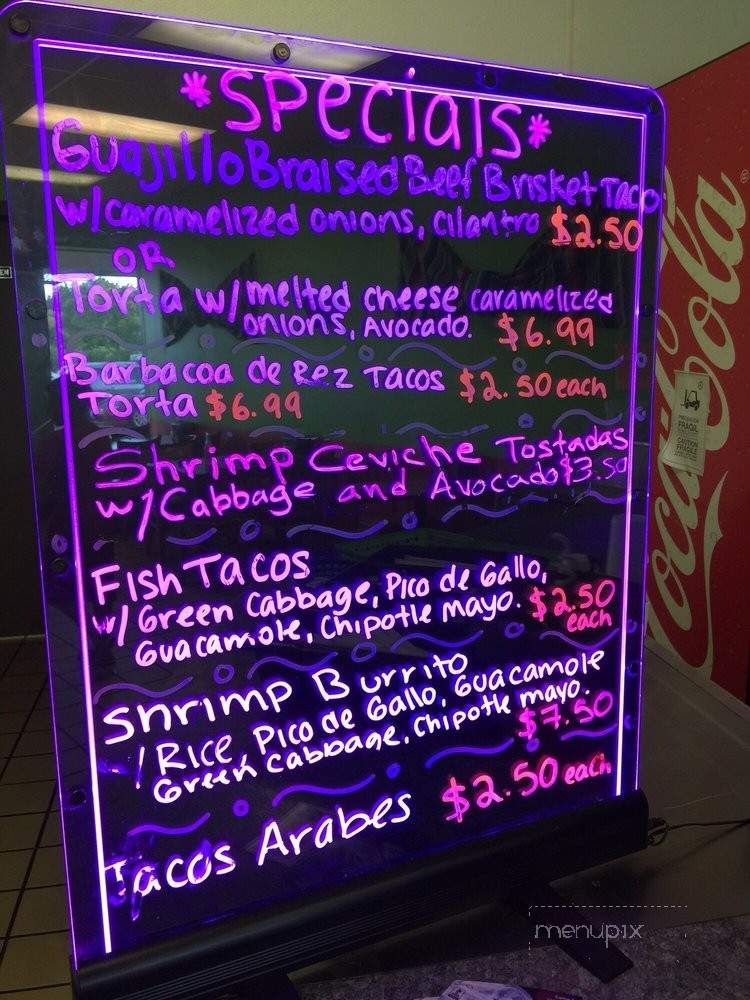 *Specials*
Guajillo Braised Beef Brisket Taco
w/caramelized onions, cilantro $2.50
OR
Torta w/ melted cheese caramelized
onions, Avocado. $6.99
Barbacoa de Rez Tacos $2.50 each
Torta $6.99
Shrimp Ceviche Tostadas
w/ Cabbage and Avocado $3.50
Fish Tacos
w/ Green Cabbage, Pico de Gallo,
Guacamole, Chipotle mayo. $2.50
each
Shrimp Burrito
/ Rice, Pico de Gallo, Guacamole
Green Cabbage, Chipotle mayo.
$7.50
Tacos Arabes $2.50 each
Coca-Cola
FRAGIL
CAUTION
FRAGILE
menupix